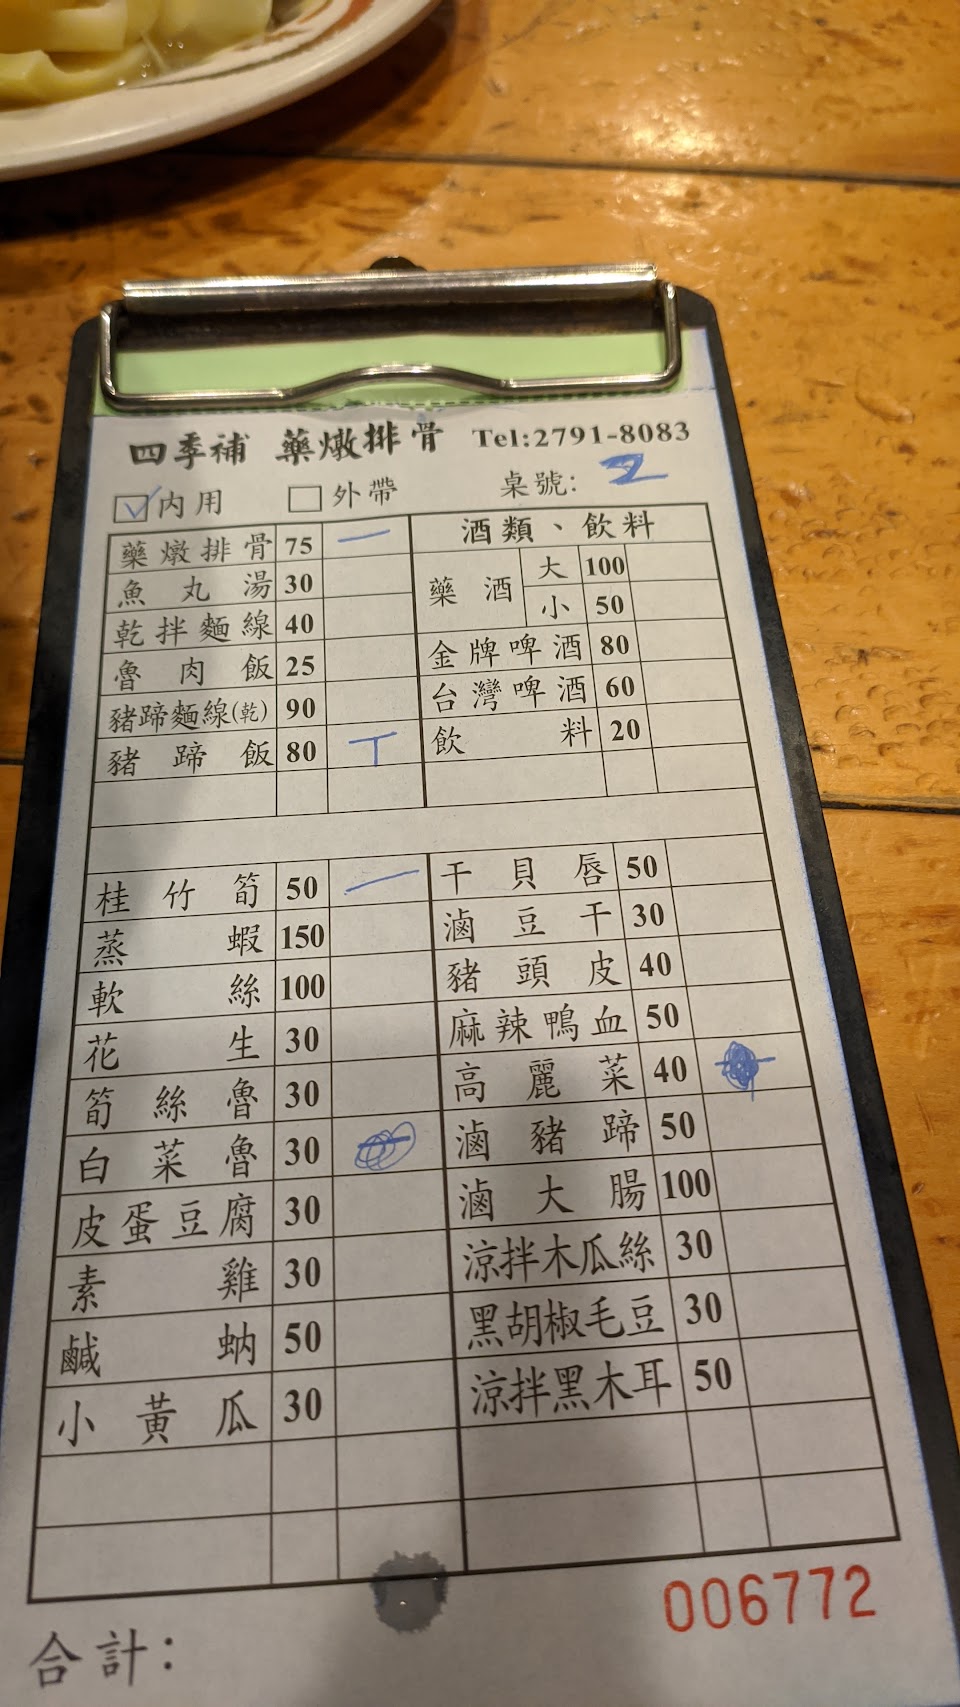 四季補 藥燉排骨 Tel:2791-8083
☑內用 ☐外帶 桌號: 2
藥燉排骨 75 一
魚丸湯 30
乾拌麵線 40
魯肉飯 25
豬蹄麵線(乾) 90
豬蹄飯 80 丅
酒類、飲料
藥酒 大 100
小 50
金牌啤酒 80
台灣啤酒 60
飲料 20
桂竹筍 50 一
蒸蝦 150
軟絲 100
花生 30
筍絲魯 30
白菜魯 30
皮蛋豆腐 30
素雞 30
鹹蚋 50
小黃瓜 30
干貝唇 50
滷豆干 30
豬頭皮 40
麻辣鴨血 50
高麗菜 40
滷豬蹄 50
滷大腸 100
涼拌木瓜絲 30
黑胡椒毛豆 30
涼拌黑木耳 50
006772
合計: